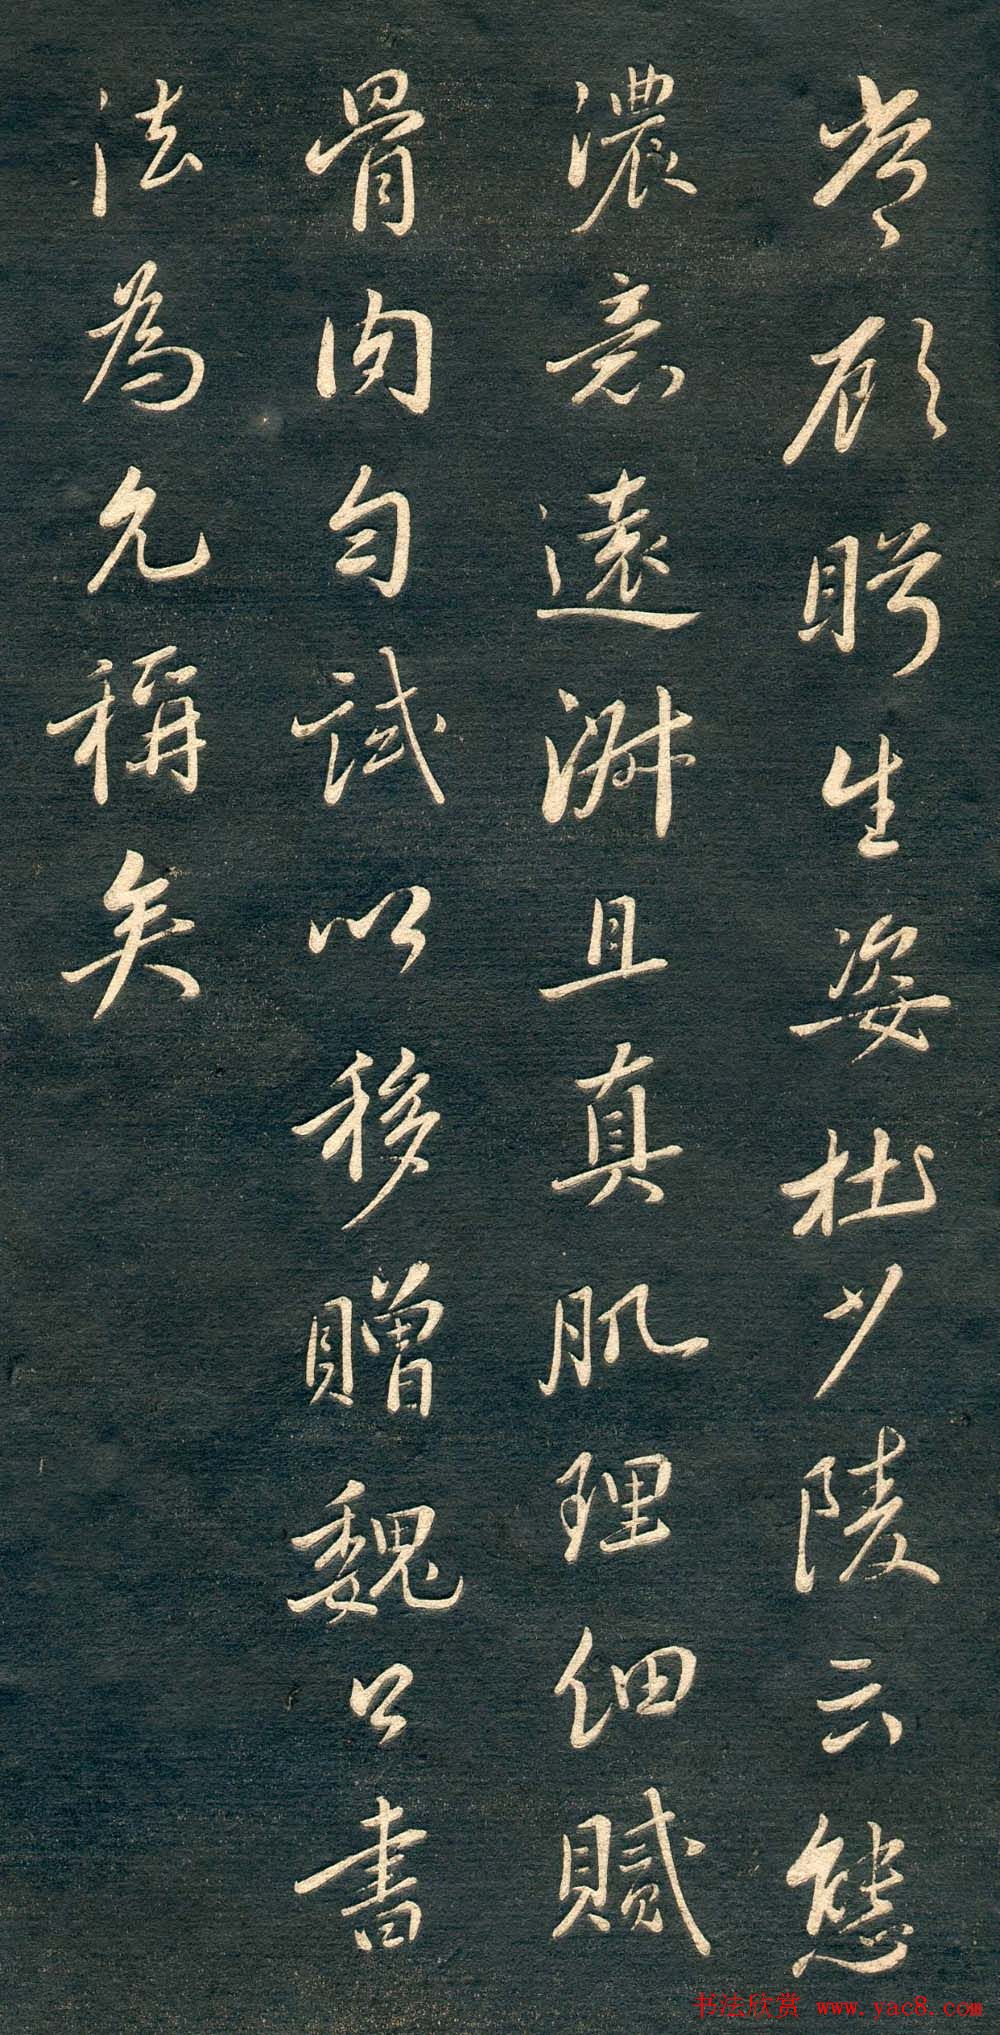 顧眄生姿杜少陵云態
濃意遠淑且真肌理細膩
骨肉勻試以移贈魏公書
法為允稱矣
书法欣赏 www.yac8.com